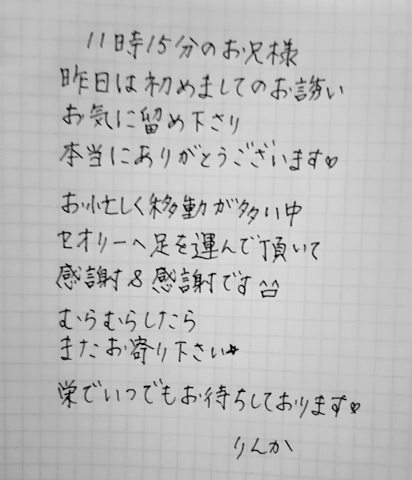 11時15分のお兄様
昨日は初めましてのお誘い
お気に留め下さり
本当にありがとうございます♡
お忙しく移動が多い中
セオリーへ足を運んで頂いて
感謝&感謝です^^
むらむらしたら
またお寄り下さい★
栄でいつでもお待ちしております♡
りんか